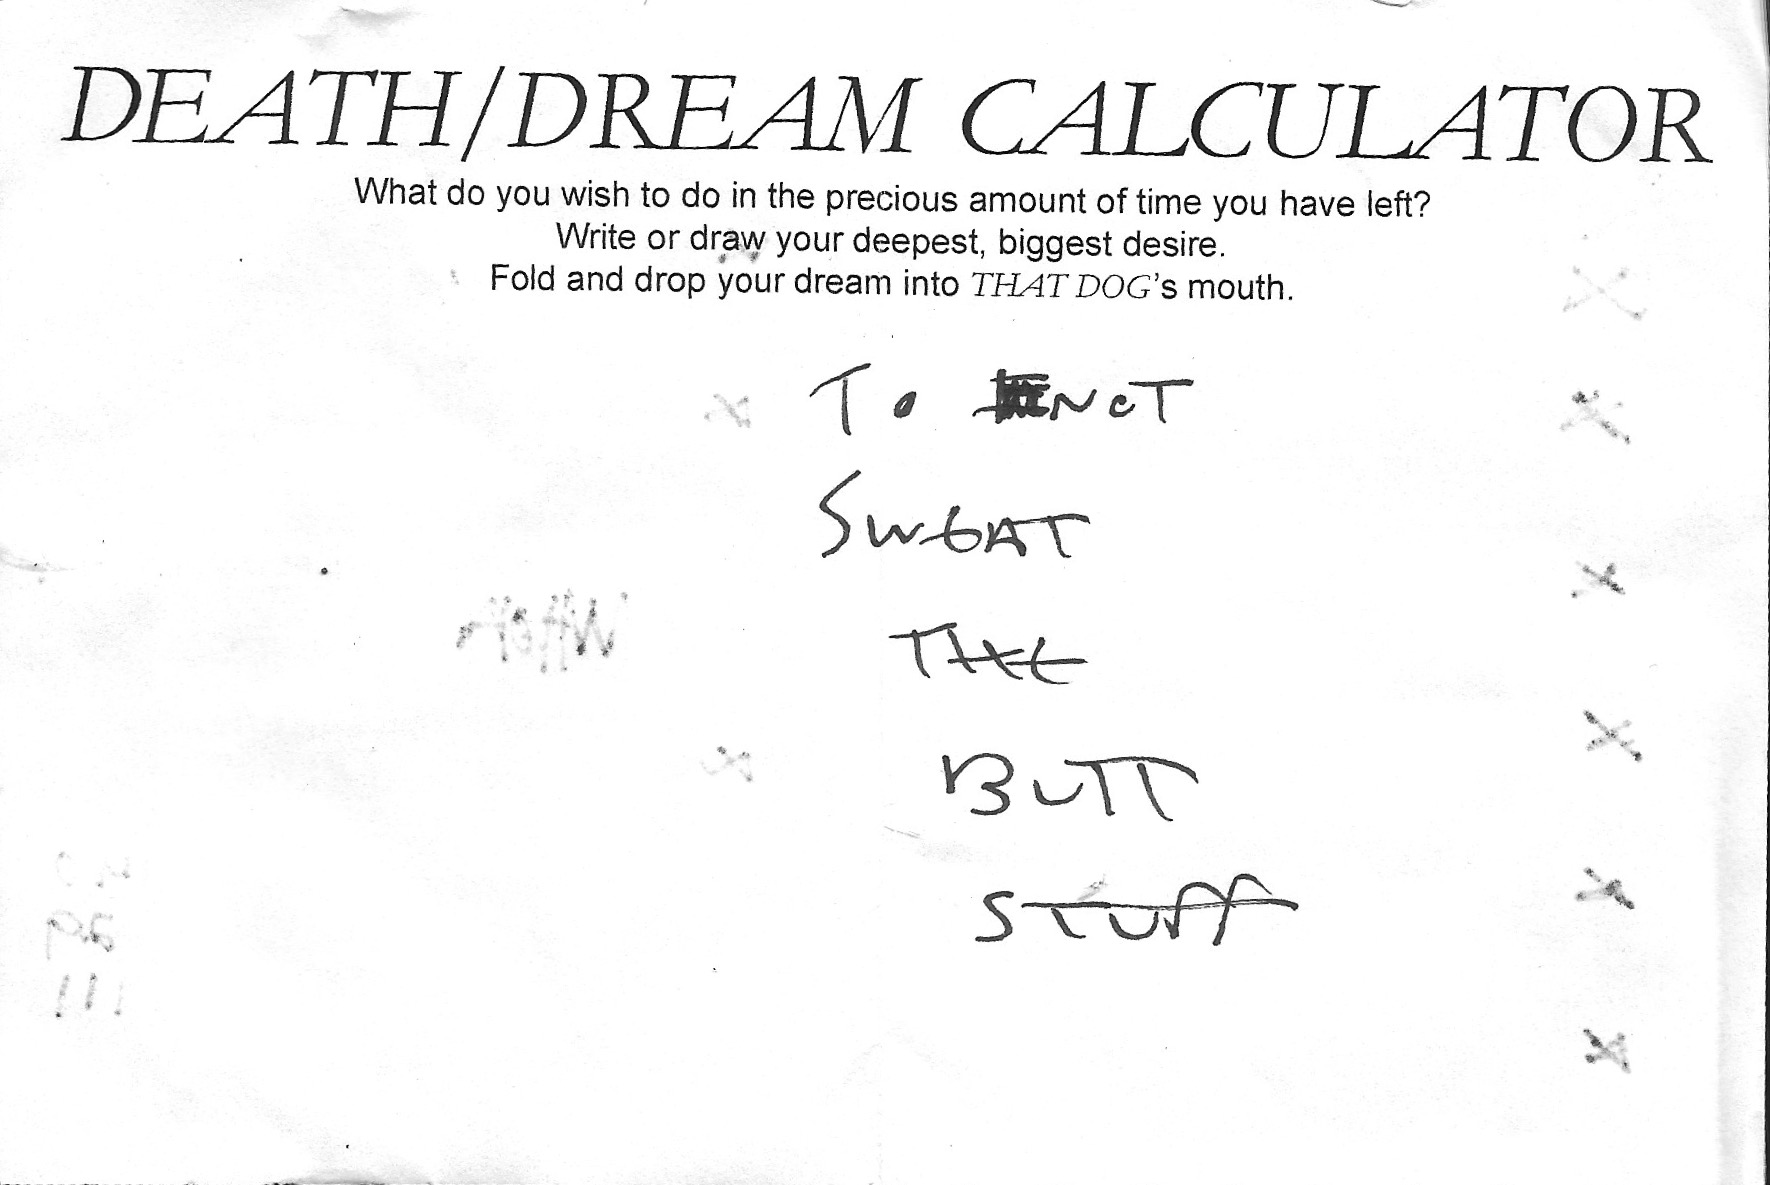 DEATH/DREAM CALCULATOR
What do you wish to do in the precious amount of time you have left?
Write or draw your deepest, biggest desire.
Fold and drop your dream into THAT DOG's mouth.
TO NOT
SWEAT
THE
BUTT
STUFF